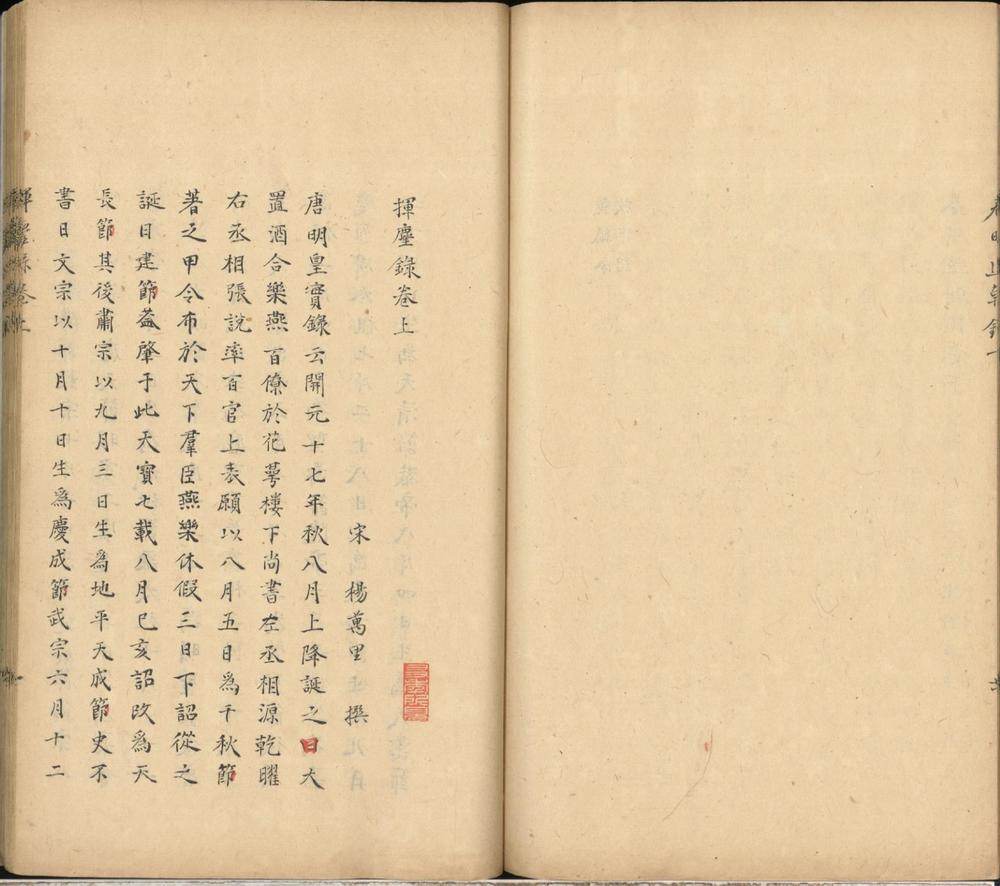 揮麈錄卷上
宋 楊萬里 撰
唐明皇實錄云開元十七年秋八月上降誕之日大
置酒合樂燕百僚於花萼樓下尚書左丞相源乾曜
右丞相張說率百官上表願以八月五日為千秋節
著之甲令布於天下羣臣燕樂休假三日下詔從之
誕日建節葢肇于此天寶七載八月已亥詔改爲天
長節其後肅宗以九月三日生為地平天成節史不
書日文宗以十月十日生爲慶成節武宗六月十二